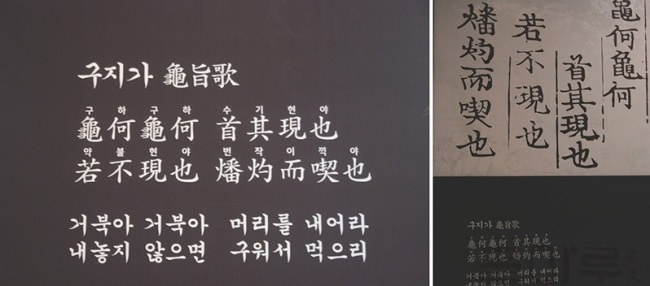 구지가 龜旨歌
구 하 구 하 수 기 현 야
龜何龜何 首其現也
약 불 현 야 번 작 이 끽 야
若不現也 燔灼而喫也
거북아 거북아 머리를 내어라
내놓지 않으면 구워서 먹으리
龜何龜何
首其現也
若不現也
燔灼而喫也
구지가 龜旨歌
龜何龜何 首其現也
若不現也 燔灼而喫也
거북아 거북아 머리를 내어라
내놓지 않으면 구워서 먹으리